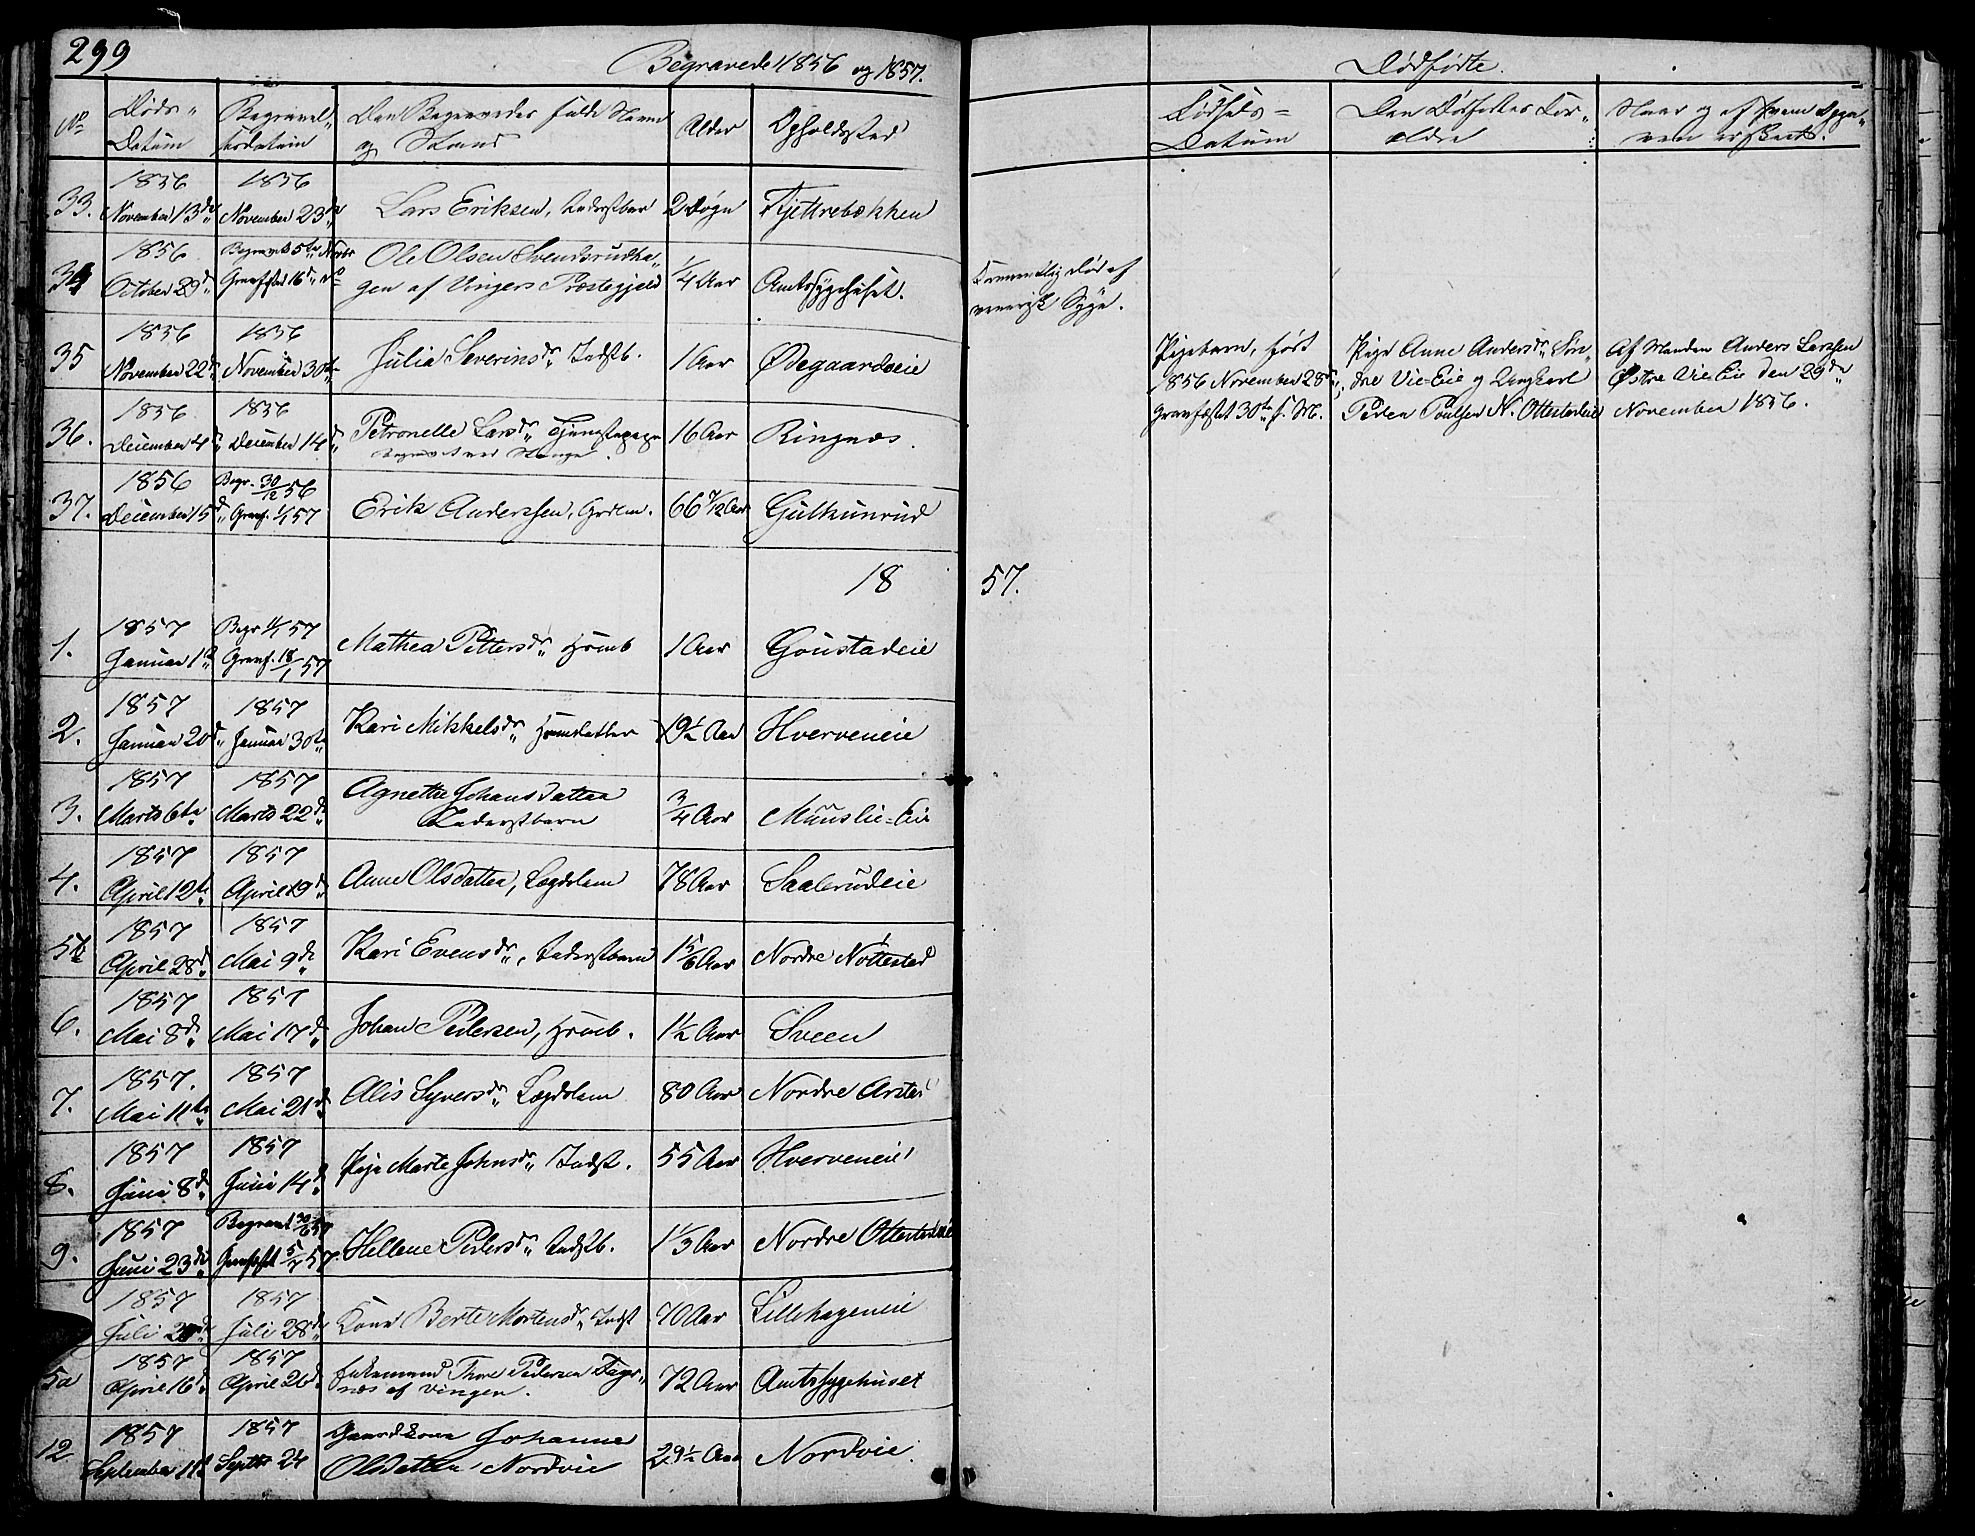 299
Begravede 1856 og 1857.
No
Døds-
Datum
Begravel-
sesdatum
Den Begravedes fulde Navn
og Stand
Alder
Opholdssted
33.
1856
November 13de
1856
November 23de
Lars Eriksen, Inderstbar
2 Døgn
Fjettrebækken
34
1856
October 29de
Begravet 5te Novbr
Græsfæstet 16de do
Ole Olsen Svensrudha-
gen af Vingers Præstegjeld
1/4 Aar
Amtssygehuset.
35
1856
November 22de
1856
November 30te
Julia Severinsdr Indstb.
1 Aar
Ødegaardseie
36.
1856
December 4de
1856
December 14de
Petronelle Larsdr Tjenestepige
16 Aar
Ringnæs.
37.
1856
December 15de
Begr. 30/12 56
Græsf. 1/1 57
Erik Anderssen, Grdm.
66 7/12 Aar
Gulhunrud
18
1.
1857
Januar 1te
Begr 11/1 57
Græsf. 18/1 57
Mathea Pettersdr Husmb
1 Aar
Goustadeie
2.
1857
Januar 20de
1857
Januar 30te
Kari Mikkelsdr Husmdatter
19 1/2 Aar
Hverveneie
3.
1857
Marts 6te
1857
Marts 22de
Agnethe Johansdatter
Inderstbarn
3/4 Aar
Muuslie-Eie
4.
1857
April 12te
1857
April 19de
Anne Olsdatter, Lægdslem
78 Aar
Saalerudeie
5b
1857
April 28de
1857
Mai 9de
Kari Evensdr, Inderstbarn
1 5/6 Aar
Nordre Nøttestad
6.
1857
Mai 8de
1857
Mai 17de
Johan Pedersen, Husmb.
1 1/2 Aar
Sveen
7.
1857.
Mai 11te
1857
Mai 21de
Alis Syversdr Lægdslem
80 Aar
Nordre Arstad
8.
1857
Juni 8de
1857
Juni 14de
Pige Marte Johnsdr Indst.
55 Aar
Hverveneie
9.
1857
Juni 23de
Begravet 30/6 57
Græsfæstet 5/7 57.
Hellene Pedersdr Indstb.
1 1/3 Aar
Nordre Ottestadeie
1857
Juli
1857
Juli 28de
Kone Berte Mortensdr Indst
70 Aar
Lillehageneie
5a
1857
April 16de
1857
April 26de
Enkemand Thore Pedersen Fager-
næs af Vinger.
72 Aar
Amtssygehuset
12
1857
September 11te
1857
Septbr 24
Gaardkone Johanne
Olsdatter Nordvie
29 1/2 Aar
Nordvie.
Formentlig død af
venerisk Syge.
57.
Dødfødte.
Fødsels-
Datum
Den Dødfødtes For-
ældre
Naar og af hvem Opga-
ven er skeet.
Pigebarn, født
1856 November 28de,
græsfæstet 30te s. M.
Pige Anne Andersdr Søn-
dre Vie-Eie og Ungkarl
Peder Poulsen N. Ottestadeie
Af Manden Anders Larssen
Østre Vie Eie den 29de
November 1856.